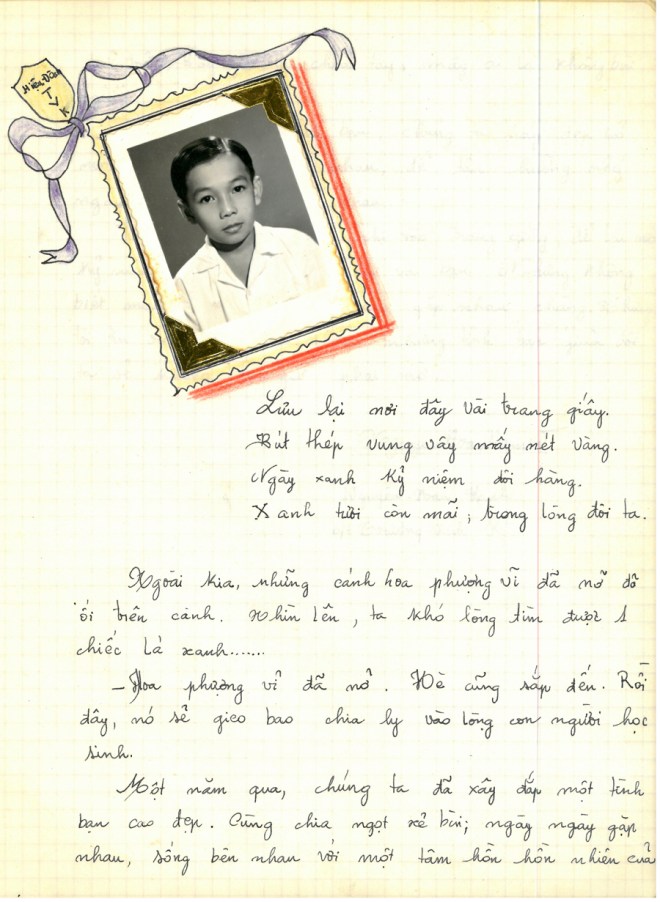 Hiếu-Định
TVK
Lưu lại nơi đây vài trang giấy.
Bút thép vung vây mấy nét vàng.
Ngày xanh kỷ niệm đôi hàng.
Xanh tươi còn mãi, trong lòng đôi ta.
Ngoài kia, những cánh hoa phượng vĩ đã nở đỏ
ối trên cành. Nhìn lên, ta khó lòng tìm được 1
chiếc lá xanh.......
- Hoa phượng vĩ đã nở. Hè cũng sắp đến. Rồi
đây, nó sẽ gieo bao chia ly vào lòng con người học
sinh.
Một năm qua, chúng ta đã xây đắp một tình
bạn cao đẹp. Cùng chia ngọt xẻ bùi; ngày ngày gặp
nhau, sống bên nhau với một tâm hồn hồn nhiên của